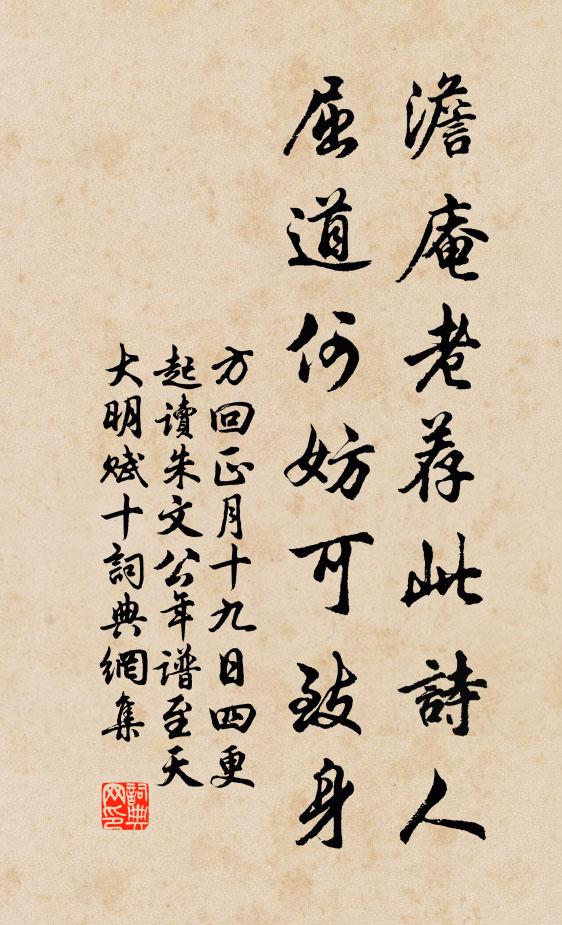 澹庵老荐此詩人
屈道何妨可致身
方回正月十九日四更
起讀朱文公年谱至天
大明賦十詞典網集
詞典
网印